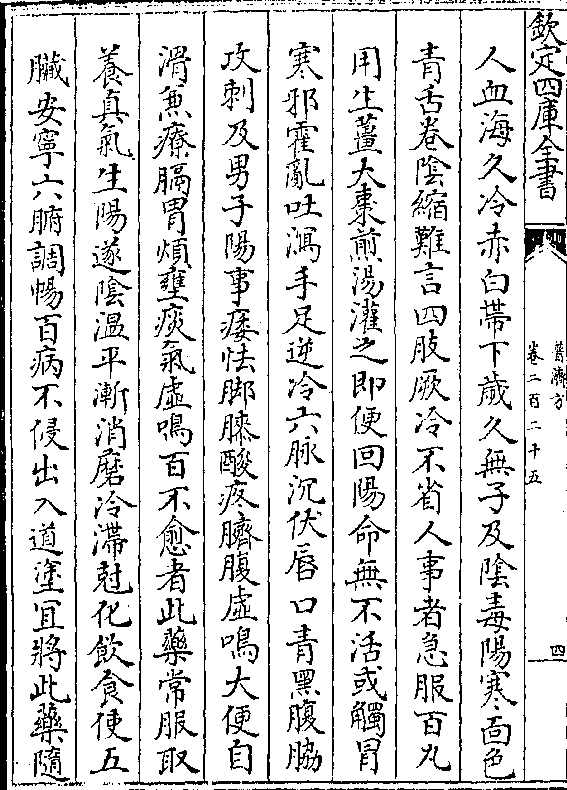 欽定四庫全書
普濟方
卷二百二十五
四
人血海久冷赤白帶下歲久無子及陰毒陽寒面色
青舌卷陰縮難言四肢厥冷不省人事者急服百丸
用生薑大棗煎湯灌之即便回陽命無不活或觸冒
寒邪霍亂吐瀉手足逆冷六脉沉伏唇口青黑腹脇
攻刺及男子陽事痿怯脚膝酸疼臍腹虛鳴大便自
滑兼療膈胃煩壅痰氣虛鳴百不愈者此藥常服取
養真氣生陽遂陰溫平漸消磨冷滯尅化飲食使五
臟安寧六腑調暢百病不侵出入道塗宜將此藥隨